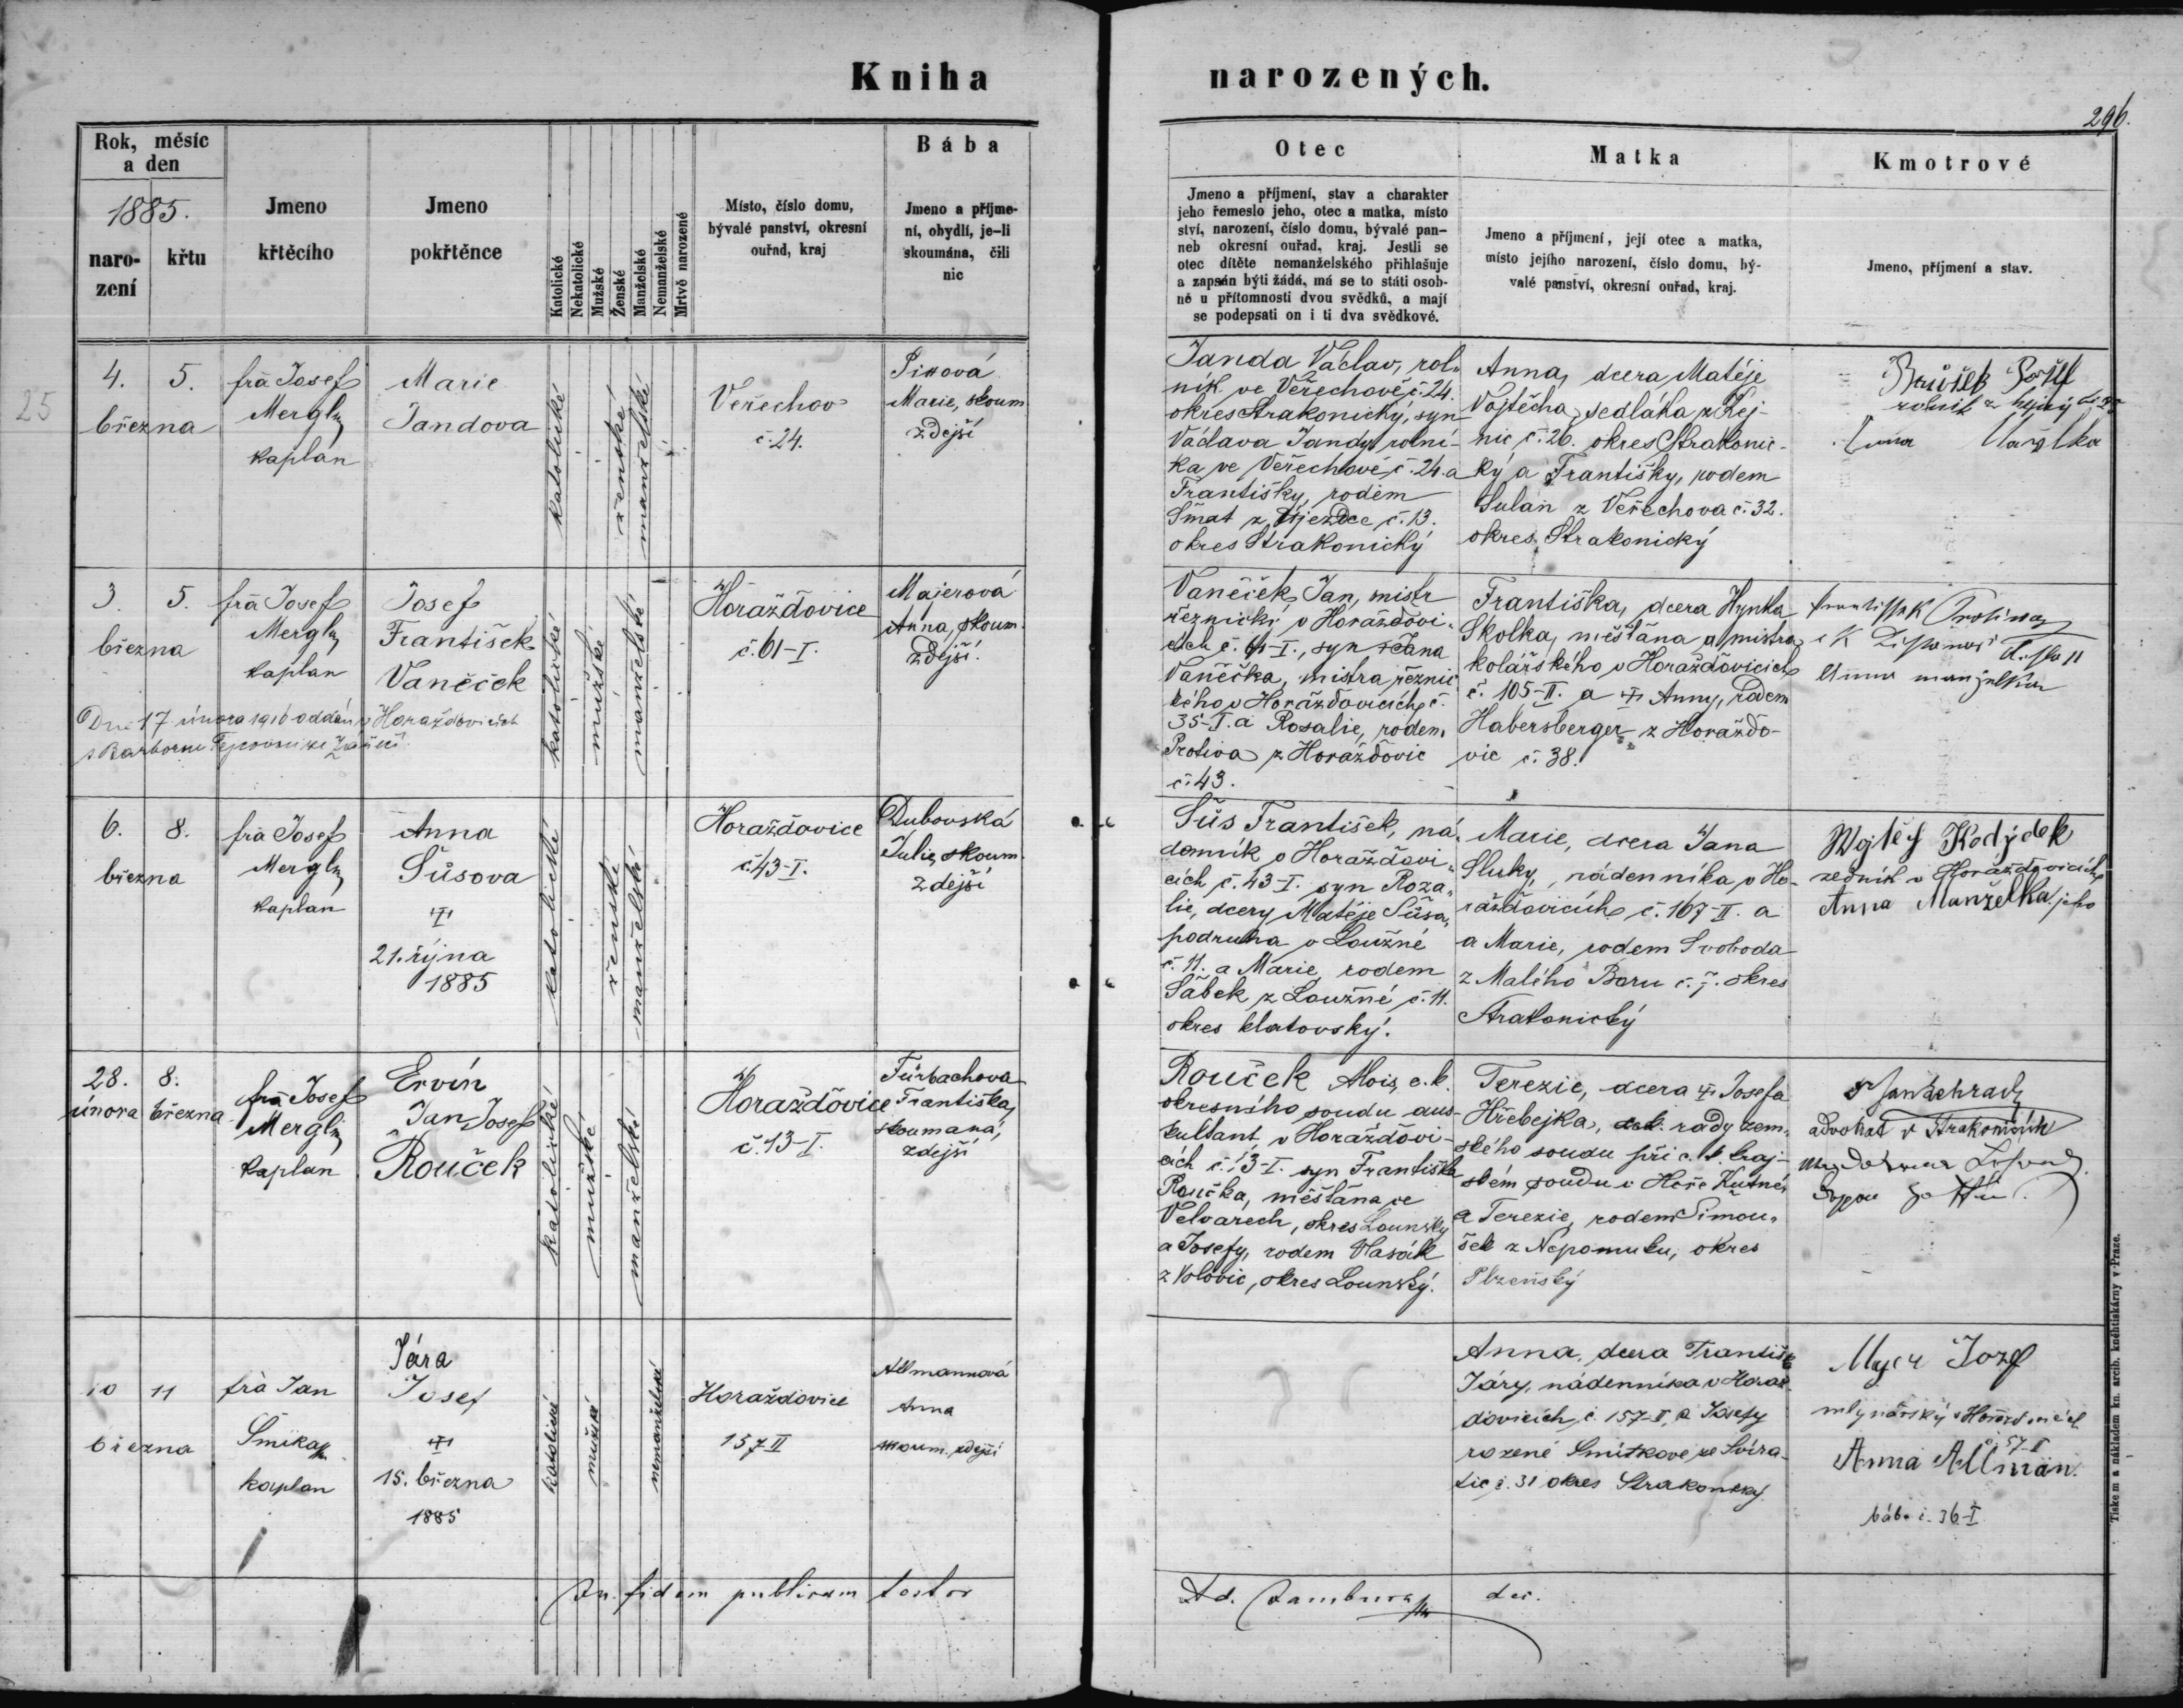 Kniha narozených.
296.
Rok, měsíc
a den
1885.
naro-
zení
křtu
Jmeno
křtěcího
Jmeno
pokřtěnce
Katolické
Nekatolické
Mužské
Ženské
Manželské
Nemanželské
Mrtvě narozené
Místo, číslo domu,
bývalé panství, okresní
ouřad, kraj
Bába
Jmeno a příjme-
ní, obydlí, je-li
skoumána, čili
nic
Otec
Jmeno a příjmení, stav a charakter
jeho řemeslo jeho, otec a matka, místo
ství, narození, číslo domu, bývalé pan-
neb okresní ouřad, kraj. Jestli se
otec dítěte nemanželského přihlašuje
a zapsán býti žádá, má se to státi osob-
ně u přítomnosti dvou svědků, a mají
se podepsati on i ti dva svědkové.
Matka
Jmeno a příjmení, její otec a matka,
místo jejího narození, číslo domu, bý-
valé panství, okresní ouřad, kraj.
Kmotrové
Jmeno, příjmení a stav.
25
4. 5.
března
fra Josef
Mergl
kaplan
Marie
Jandova
katolické
ženské
manželské
Veřechov
č. 24.
Marie, skoum
zdejší
Janda Václav, rol-
ník ve Veřechově č. 24.
okres Strakonický, syn
Václava Jandy rolní-
ka ve Veřechově č. 24. a
Františky, rodem
Šmat z Újezdce č. 13.
okres Strakonický
Anna, dcera Matěje
Vojtěcha, sedláka z Kej-
nic č. 26. okres Strakonic-
ký a Františky, rodem
Sulan z Veřechova č. 32.
okres Strakonický
3. 5.
března
fra Josef
Mergl
kaplan
Josef
František
Vaněček
Dne 17 února 1916 oddán v Horažďovicích
katolické
mužské
manželské
Horažďovice
č. 61-I.
Majerová
Anna, skoum.
zdejší.
Vaněček Jan, mistr
řeznický v Horažďovi-
cích č. 61-I., syn Jana
Vaněčka, mistra řeznic
kého v Horažďovicích č.
35-I. a Rosalie, rodem
Protiva z Horažďovic
č. 43.
Františka, dcera Hynka
Skolka, měšťana a mistra
kolářského v Horažďovicích
č. 105-II. a Anny, rodem
Habersberger z Horažďo-
vic č. 38.
6. 8.
března
fra Josef
Mergl
kaplan
Anna
Šůsova
21. října
1885
katolické
ženské
manželské
Horažďovice
č. 43-I.
Dubovská
Julie, skoum.
zdejší
Šůs František, ná-
denník v Horažďovi-
cích č. 43-I. syn Roza-
lie, dcery Matěje Šůsa,
podruha v Loužné
č. 11. a Marie, rodem
Šábek z Loužné č. 11.
okres klatovský.
Marie, dcera Jana
Sluky, nádenníka v Ho-
ražďovicích č. 167-II. a
a Marie, rodem Svoboda
z Malého Boru č. 7. okres
Strakonický
Wojtěch Kodýdek
zedník v Horažďovicích
Anna Manželka jeho
28. 8.
února března
fra Josef
Mergl
kaplan
Ervín
Jan Josef
Rouček
katolické
mužské
manželské
Horažďovice
č. 13-I.
Fürbachova
Františka,
skoumaná,
zdejší
Rouček Alois, c. k.
okresního soudu aus-
kultant v Horažďovi-
cích č. 13-I. syn Františka
Roučka, měšťana ve
Velvarech, okres Lounský
a Josefy, rodem Vlasák
z Volovic, okres Lounský.
Terezie, dcera Josefa
Hřebejka, rady zem-
ského soudu při c. k. kraj-
ském soudu v Hoře Kutné
a Terezie, rodem Šimou-
šek z Nepomuku, okres
Plzeňský
advokat v Strakonicích
10 11
března
fra Jan
kaplan
Jára
Josef
15. března
1885
katolické
mužské
nemanželské
Horažďovice
157 II
Allmannová
Anna
skoum. zdejší
Anna, dcera Františka
Járy, nádenníka v Horaž-
ďovicích č. 157-II, a Josefy
rozené Smitkove ze Svíra-
tic č. 31 okres Strakonický
Josef
mlynářský v Horažďovicích
57-I
Anna Allman.
bába č. 36-I
In fidem publicam testor
Tiskem a nákladem kn. arcib. knéhtiskárny v Praze.